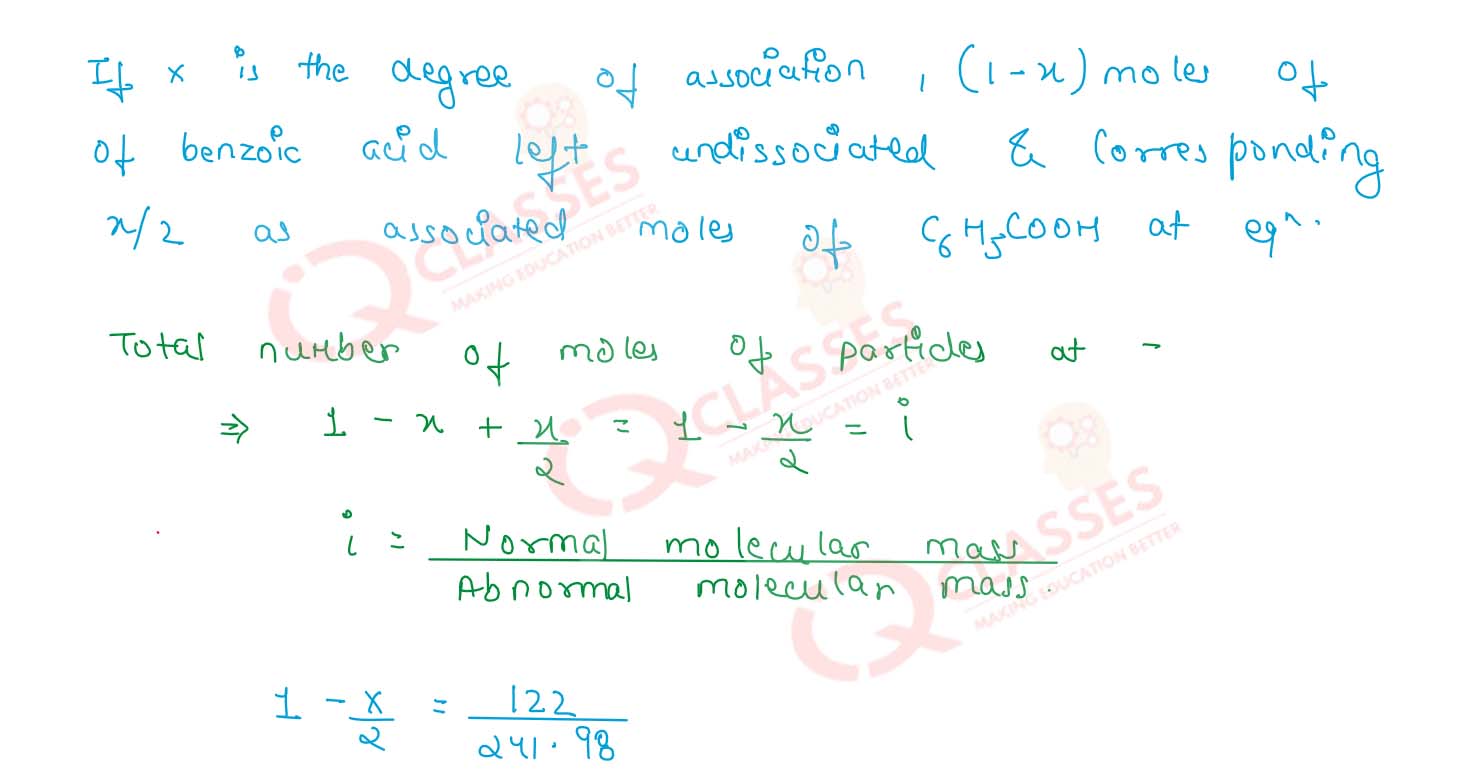 If x is the degree of association, (1-x) moles of
of benzoic acid left undissociated & Corresponding
x/2 as associated moles of C6H5COOH at eqⁿ.
Total number of moles of particles at -
⇒ 1 - x + x/2 = 1 - x/2 = i
i = Normal molecular mass / Abnormal molecular mass.
1 - x/2 = 122 / 241.98
iQ CLASSES
MAKING EDUCATION BETTER
iQ CLASSES
MAKING EDUCATION BETTER
iQ CLASSES
MAKING EDUCATION BETTER